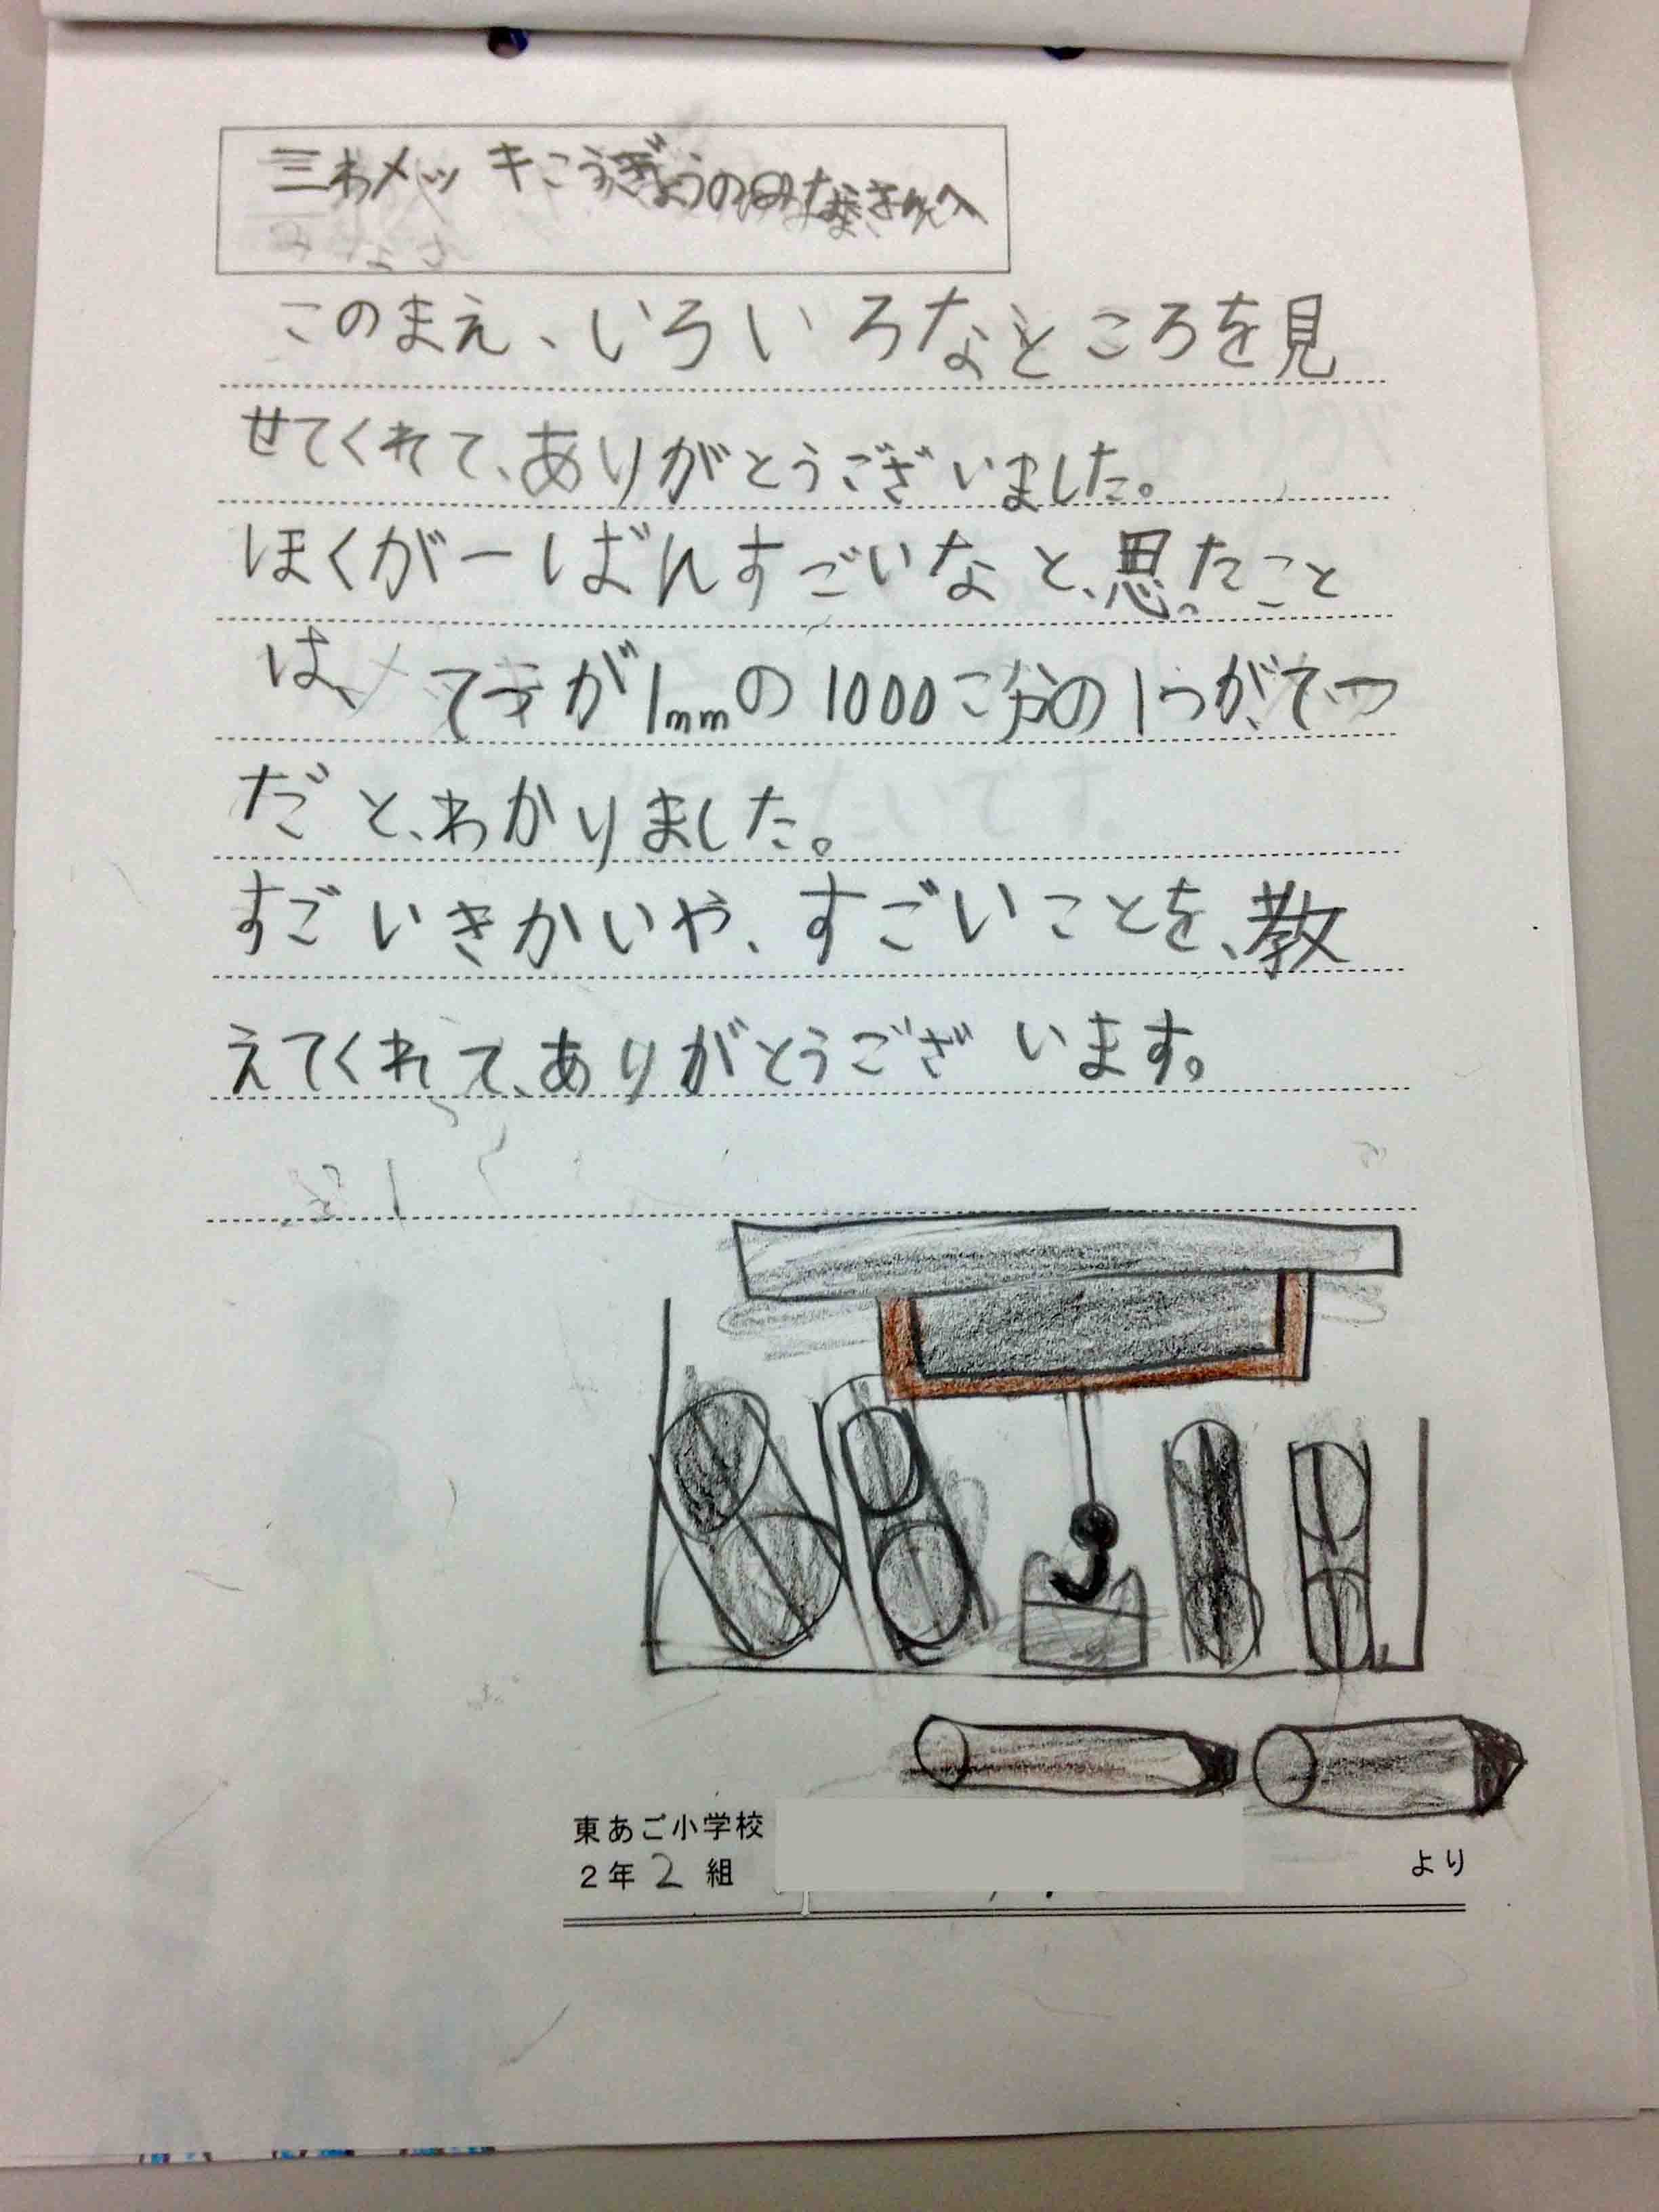 三わメッキこうぎょうのみなさんへ
このまえ、いろいろなところを見
せてくれて、ありがとうございました。
ほくが一ばんすごいなと、思ったこと
は、てつが1mmの1000こ分の1つが、てつ
だと、わかりました。
すごいきかいや、すごいことを、教
えてくれて、ありがとうございます。
東あご小学校
2年2組
より